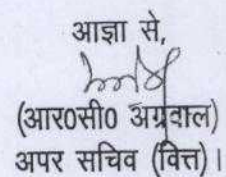 आज्ञा से,
(आर0सी0 अग्रवाल)
अपर सचिव (वित्त)।